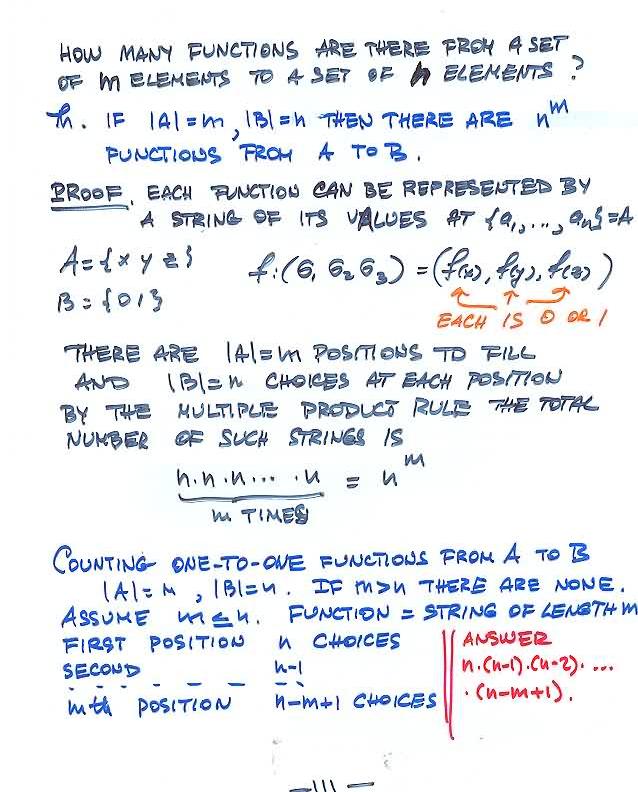 HOW MANY FUNCTIONS ARE THERE FROM A SET
OF m ELEMENTS TO A SET OF n ELEMENTS ?
Th. IF |A|=m, |B|=n THEN THERE ARE n^m
FUNCTIONS FROM A TO B.
PROOF. EACH FUNCTION CAN BE REPRESENTED BY
A STRING OF ITS VALUES AT {a₁,..., aₘ}=A
A={x y z} f:(б₁ б₂ б₃) = (f(x), f(y), f(z))
B={0 1}
EACH IS 0 OR 1
THERE ARE |A|=m POSITIONS TO FILL
AND |B|=n CHOICES AT EACH POSITION
BY THE MULTIPLE PRODUCT RULE THE TOTAL
NUMBER OF SUCH STRINGS IS
n·n·n··· ·n = n^m
m TIMES
COUNTING ONE-TO-ONE FUNCTIONS FROM A TO B
|A|=m, |B|=n. IF m>n THERE ARE NONE.
ASSUME m≤n. FUNCTION = STRING OF LENGTH m
FIRST POSITION n CHOICES
SECOND n-1
mth POSITION n-m+1 CHOICES
ANSWER
n·(n-1)·(n-2)· ...
·(n-m+1).
-111-